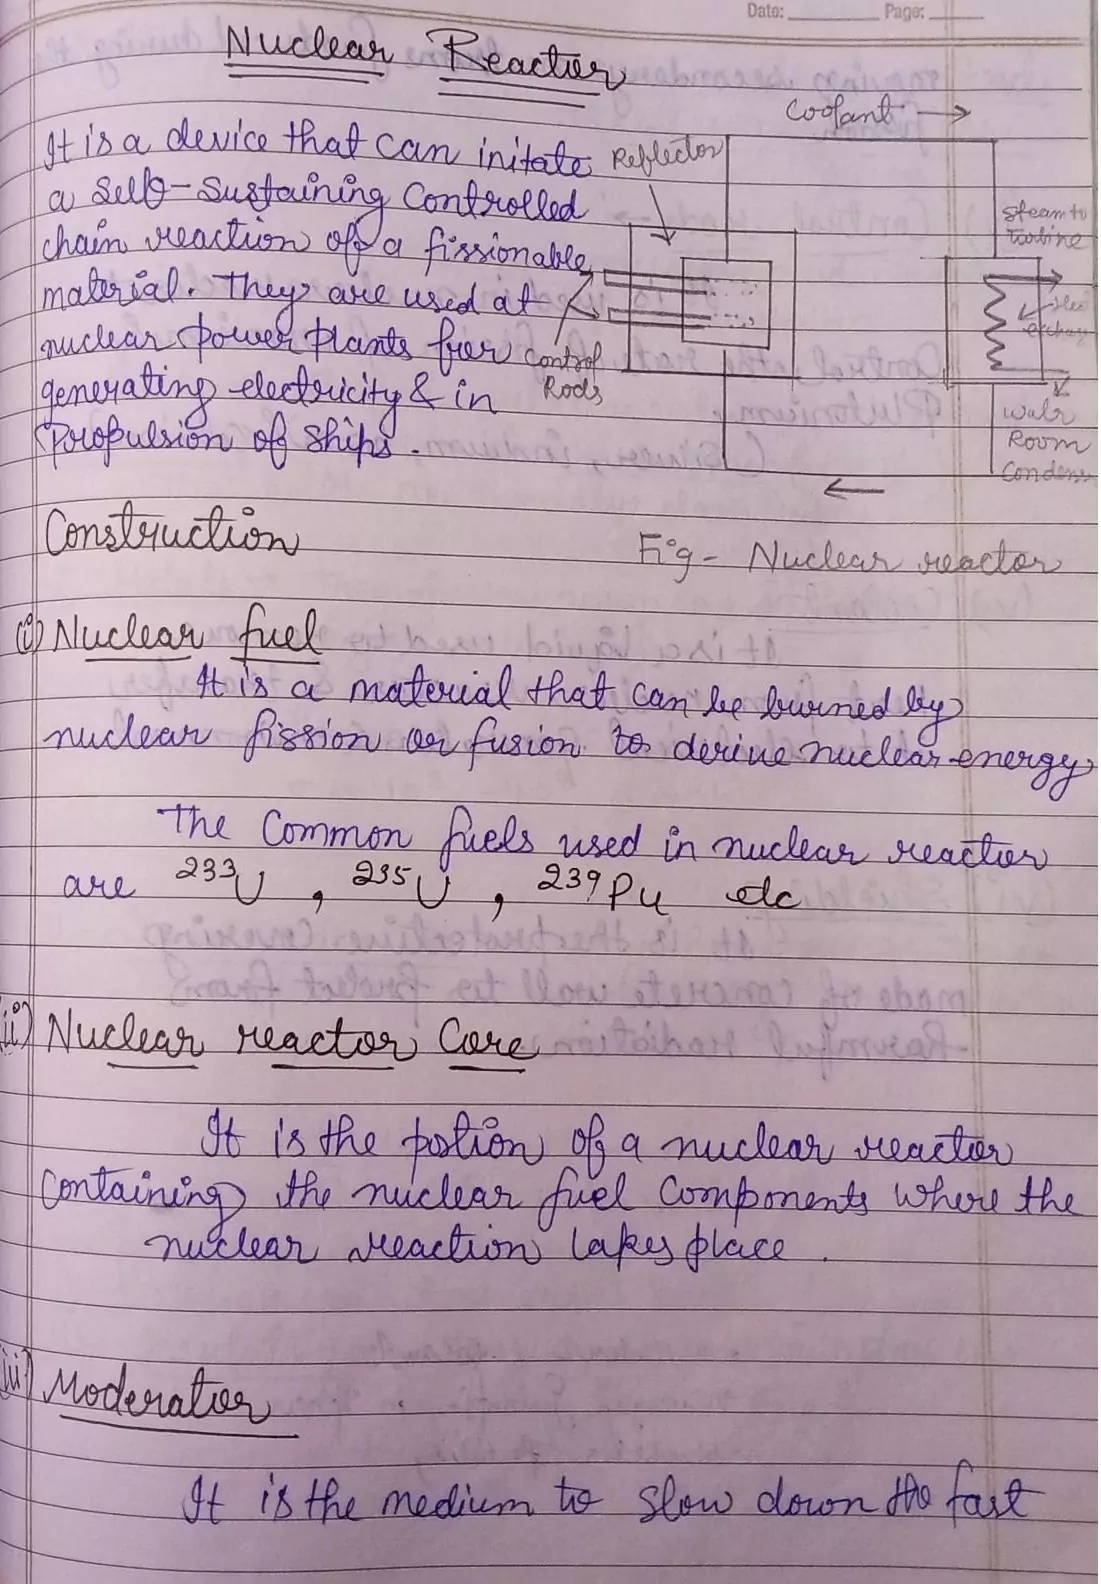 Date: Page:
Nuclear Reactor
Coolant →
It is a device that can initate
Reflector
a Self-Sustaining Controlled
chain reaction of a fissionable
material. They are used at
nuclear power plants for
generating electricity & in
Propulsion of Ships.
Control
Rods
Steam to
turbine
Room
Fig- Nuclear reactor
Construction
(i) Nuclear fuel
It is a material that can be burned by
nuclear fission or fusion to derive nuclear energy
The Common fuels used in nuclear reactor
are ²³³U , ²³⁵U , ²³⁹Pu etc
ii) Nuclear reactor Core
It is the potion of a nuclear reactor
Containing the nuclear fuel Components where the
nuclear reaction takes place.
iii) Moderator
It is the medium to slow down the fast